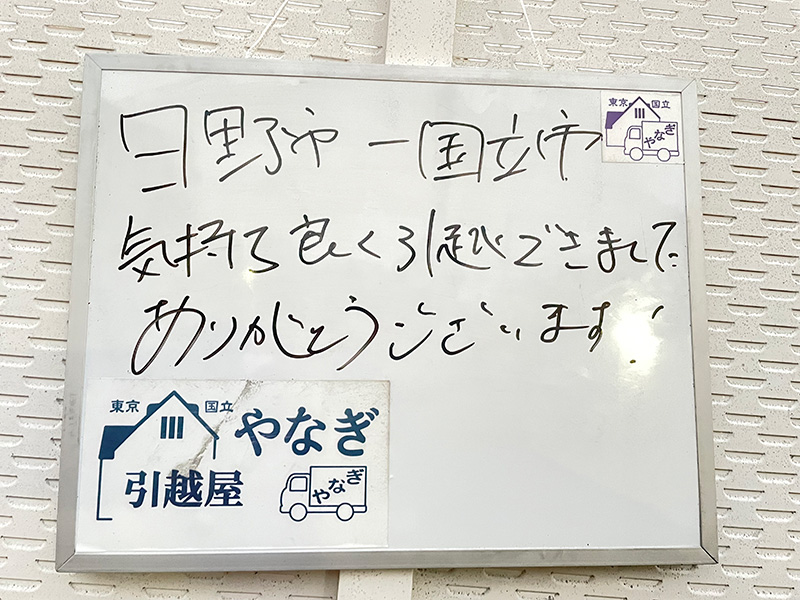 日野市ー国立市
東京 国立
やなぎ
気持ち良く引越できました
ありがとうございます!
東京 国立
やなぎ
引越屋
やなぎ